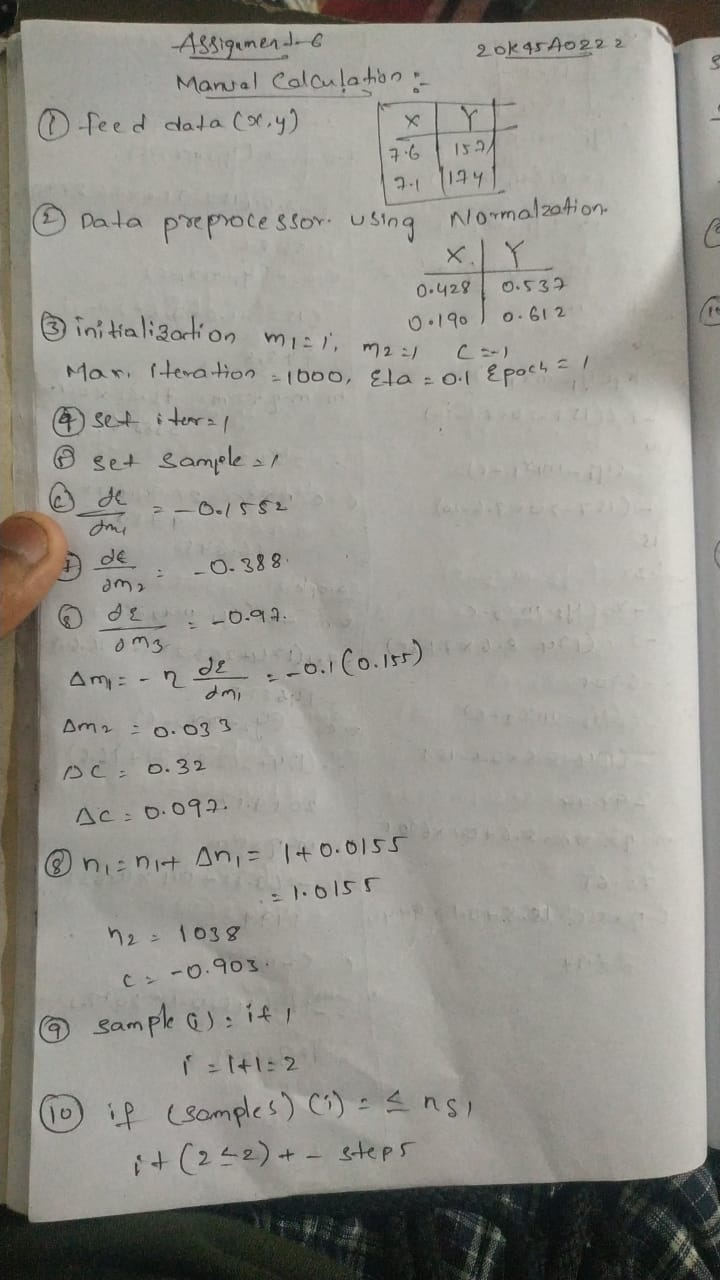 Assigment-6
20K45A0222
Manual Calculation :-
① feed data (x,y)
X Y
7.6 157
7.1 174
② Data preprocessor using Normalzation.
X Y
0.428 0.537
0.190 0.612
③ initialization m1=1, m2=1 C=-1
Max. iteration =1000, Eta = 0.1 Epoch = 1
④ set iter=1
⑤ set sample =1
dε/dm1 = -0.1552
dε/dm2 = -0.388.
dε/dm3 = -0.97.
Δm1 = -η dε/dm1 = -0.1(0.155)
Δm2 = 0.033
ΔC = 0.32
ΔC = 0.097.
⑧ n1 = n1+ Δn1 = 1+0.0155
= 1.0155
n2 = 1038
c = -0.903.
⑨ sample (i) = i+1
i = 1+1=2
⑩ if (samples) (i) = ≤ ns,
if (2≤2) + - step5